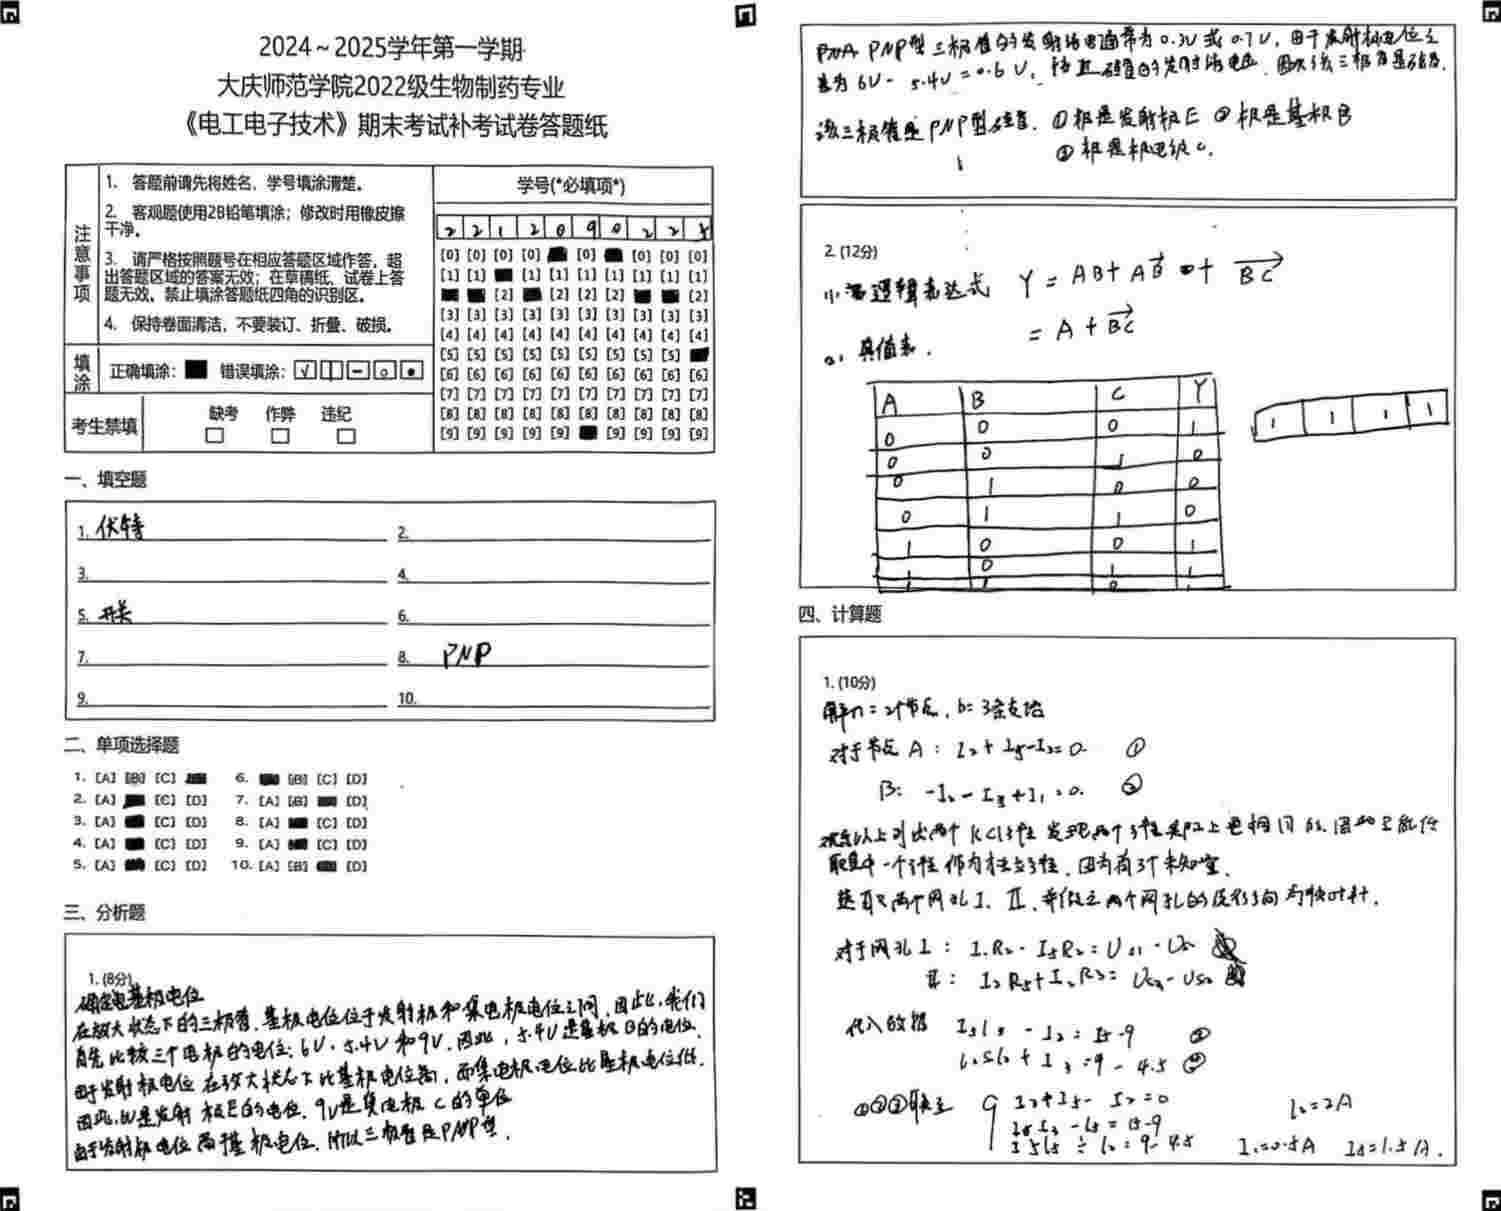 2024～2025学年第一学期
大庆师范学院2022级生物制药专业
《电工电子技术》期末考试补考试卷答题纸
注意事项
1. 答题前请先将姓名、学号填涂清楚。
2. 客观题使用2B铅笔填涂；修改时用橡皮擦
干净。
3. 请严格按照题号在相应答题区域作答，超
出答题区域的答案无效；在草稿纸、试卷上答
题无效。禁止填涂答题纸四角的识别区。
4. 保持卷面清洁，不要装订、折叠、破损。
填涂
正确填涂： 错误填涂：
考生禁填
缺考 作弊 违纪
学号(*必填项*)
2 2 1 2 0 9 0 2 2 5
[0] [0] [0] [0] [0] [0] [0] [0]
[1] [1] [1] [1] [1] [1] [1] [1] [1]
[2] [2] [2] [2] [2]
[3] [3] [3] [3] [3] [3] [3] [3] [3] [3]
[4] [4] [4] [4] [4] [4] [4] [4] [4] [4]
[5] [5] [5] [5] [5] [5] [5] [5] [5]
[6] [6] [6] [6] [6] [6] [6] [6] [6] [6]
[7] [7] [7] [7] [7] [7] [7] [7] [7] [7]
[8] [8] [8] [8] [8] [8] [8] [8] [8] [8]
[9] [9] [9] [9] [9] [9] [9] [9] [9]
一、填空题
1. 伏特 2.
3. 4.
5. 开关 6.
7. 8. PNP
9. 10.
二、单项选择题
1. [A] [B] [C] 6. [B] [C] [D]
2. [A] [C] [D] 7. [A] [B] [D]
3. [A] [C] [D] 8. [A] [C] [D]
4. [A] [C] [D] 9. [A] [C] [D]
5. [A] [C] [D] 10. [A] [B] [D]
三、分析题
1. (8分)
确定基极电位
在放大状态下的三极管，基极电位位于发射极和集电极电位之间，因此，我们
首先比较三个电极的电位：6V、5.4V和9V。因此，5.4V是基极B的电位。
由于发射极电位在放大状态下比基极电位高，而集电极电位比基极电位低。
因此，6V是发射极E的电位，9V是集电极C的单位
由于发射极电位高于基极电位，所以三极管是PNP型。
PNP型三极管的发射结电通常为0.3V或0.7V，由于发射极电位之
差为6V-5.4V=0.6V，
该三极管是PNP型硅管，①极是发射极E ②极是基极B
③极是极电极C。
2. (12分)
(1) 逻辑表达式 Y = AB + AB + BC
= A + BC
(2) 真值表.
A B C Y
0 0 0 1
0 0 1 0
0 1 0 0
0 1 1 0
1 0 0 1
1 0 1 1
1 1 0 1
1 1 1 1
四、计算题
1. (10分)
解 n=2个节点，b=3条支路
对于节点A：I₂+I₅-I₃=0 ①
B：-I₂-I₃+I₁=0. ②
以上对比两个KCL方程发现两个方程实际上是相同的，因此只能任
取其中一个方程作为独立方程，因为有3个未知量，
选取两个网孔Ⅰ、Ⅱ，并假定两个网孔的绕行方向为顺时针，
对于网孔Ⅰ：
Ⅱ：
代入数据
①②③联立
I₂=2A
I₁=0.5A I₅=1.5A.